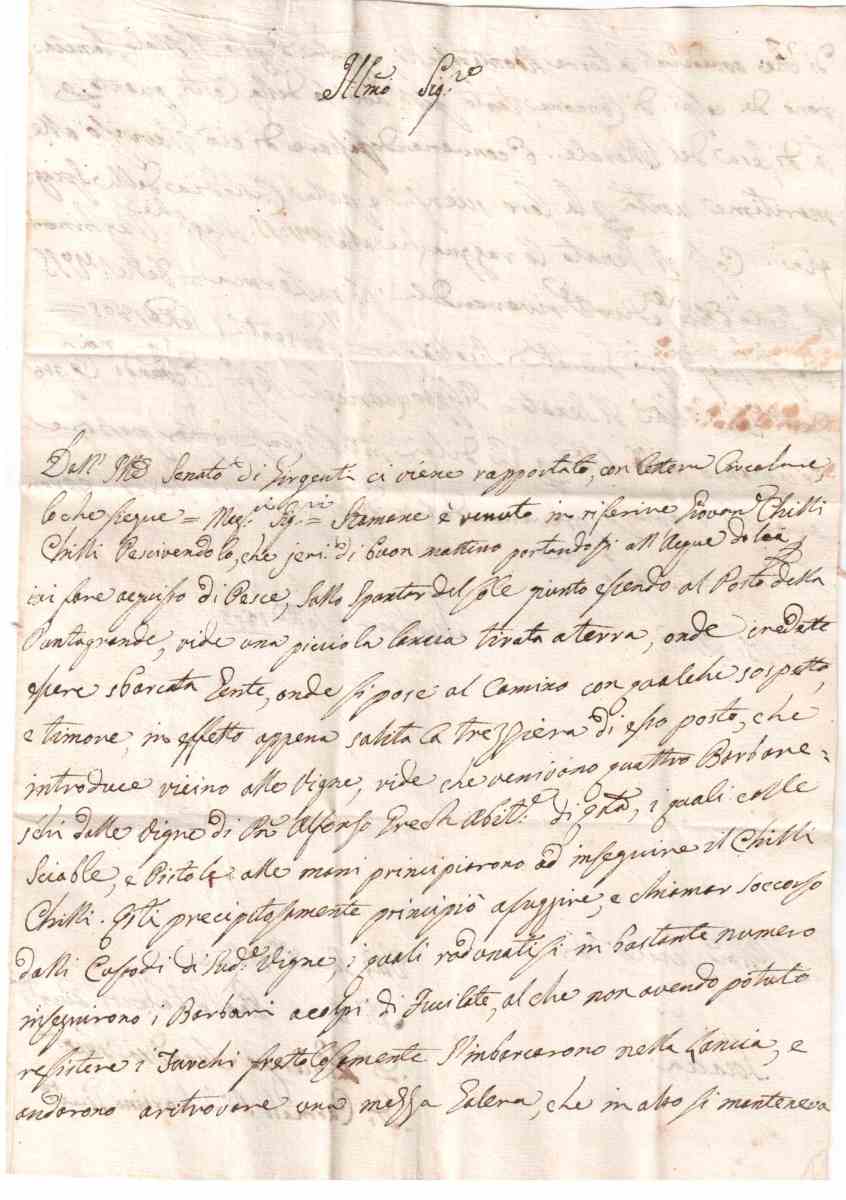 Ill.mo Sig.re
Dall' Ill.e Senato di Girgenti ci viene rapportato, con lettera Circolare,
lo che siegue = Mag.ci Sig.ri = Stamane è venuto in riferire Giovan.e Chilli
Chilli Pescivendolo, che jeri di buon mattino portandosi all' Acque dolci
ivi fare acquisto di Pesce, sallo Spontar del sole giunto essendo al Posto della
Puntagrande, vide una picciola lancia tirata a terra, onde credette
essere sbarcata Gente, onde si pose al Camino con qualche sospetto,
e timore, in effetto appena salita la trazziera di esso posto, che
introduce vicino alle vigne, vide che venivano quattro Barbare=
schi dalle vigne di D.n Alfonso Grech Abit.e di q.sta, i quali colle
Sciable, e Pistole alle mani principiarono ad inseguire il Chilli
Chilli. Q.sti precipitosamente principiò a fuggire, e chiamar soccorso
dalli Custodi di sud.e vigne, i quali radunatisi in bastante numero
inseguirono i Barbari a colpi di Fucilate, al che non avendo potuto
resistere i Turchi frettolosamente s'imbarcarono nella Lancia, e
andarono a ritrovare una mezza Galera, che in alto si manteneva